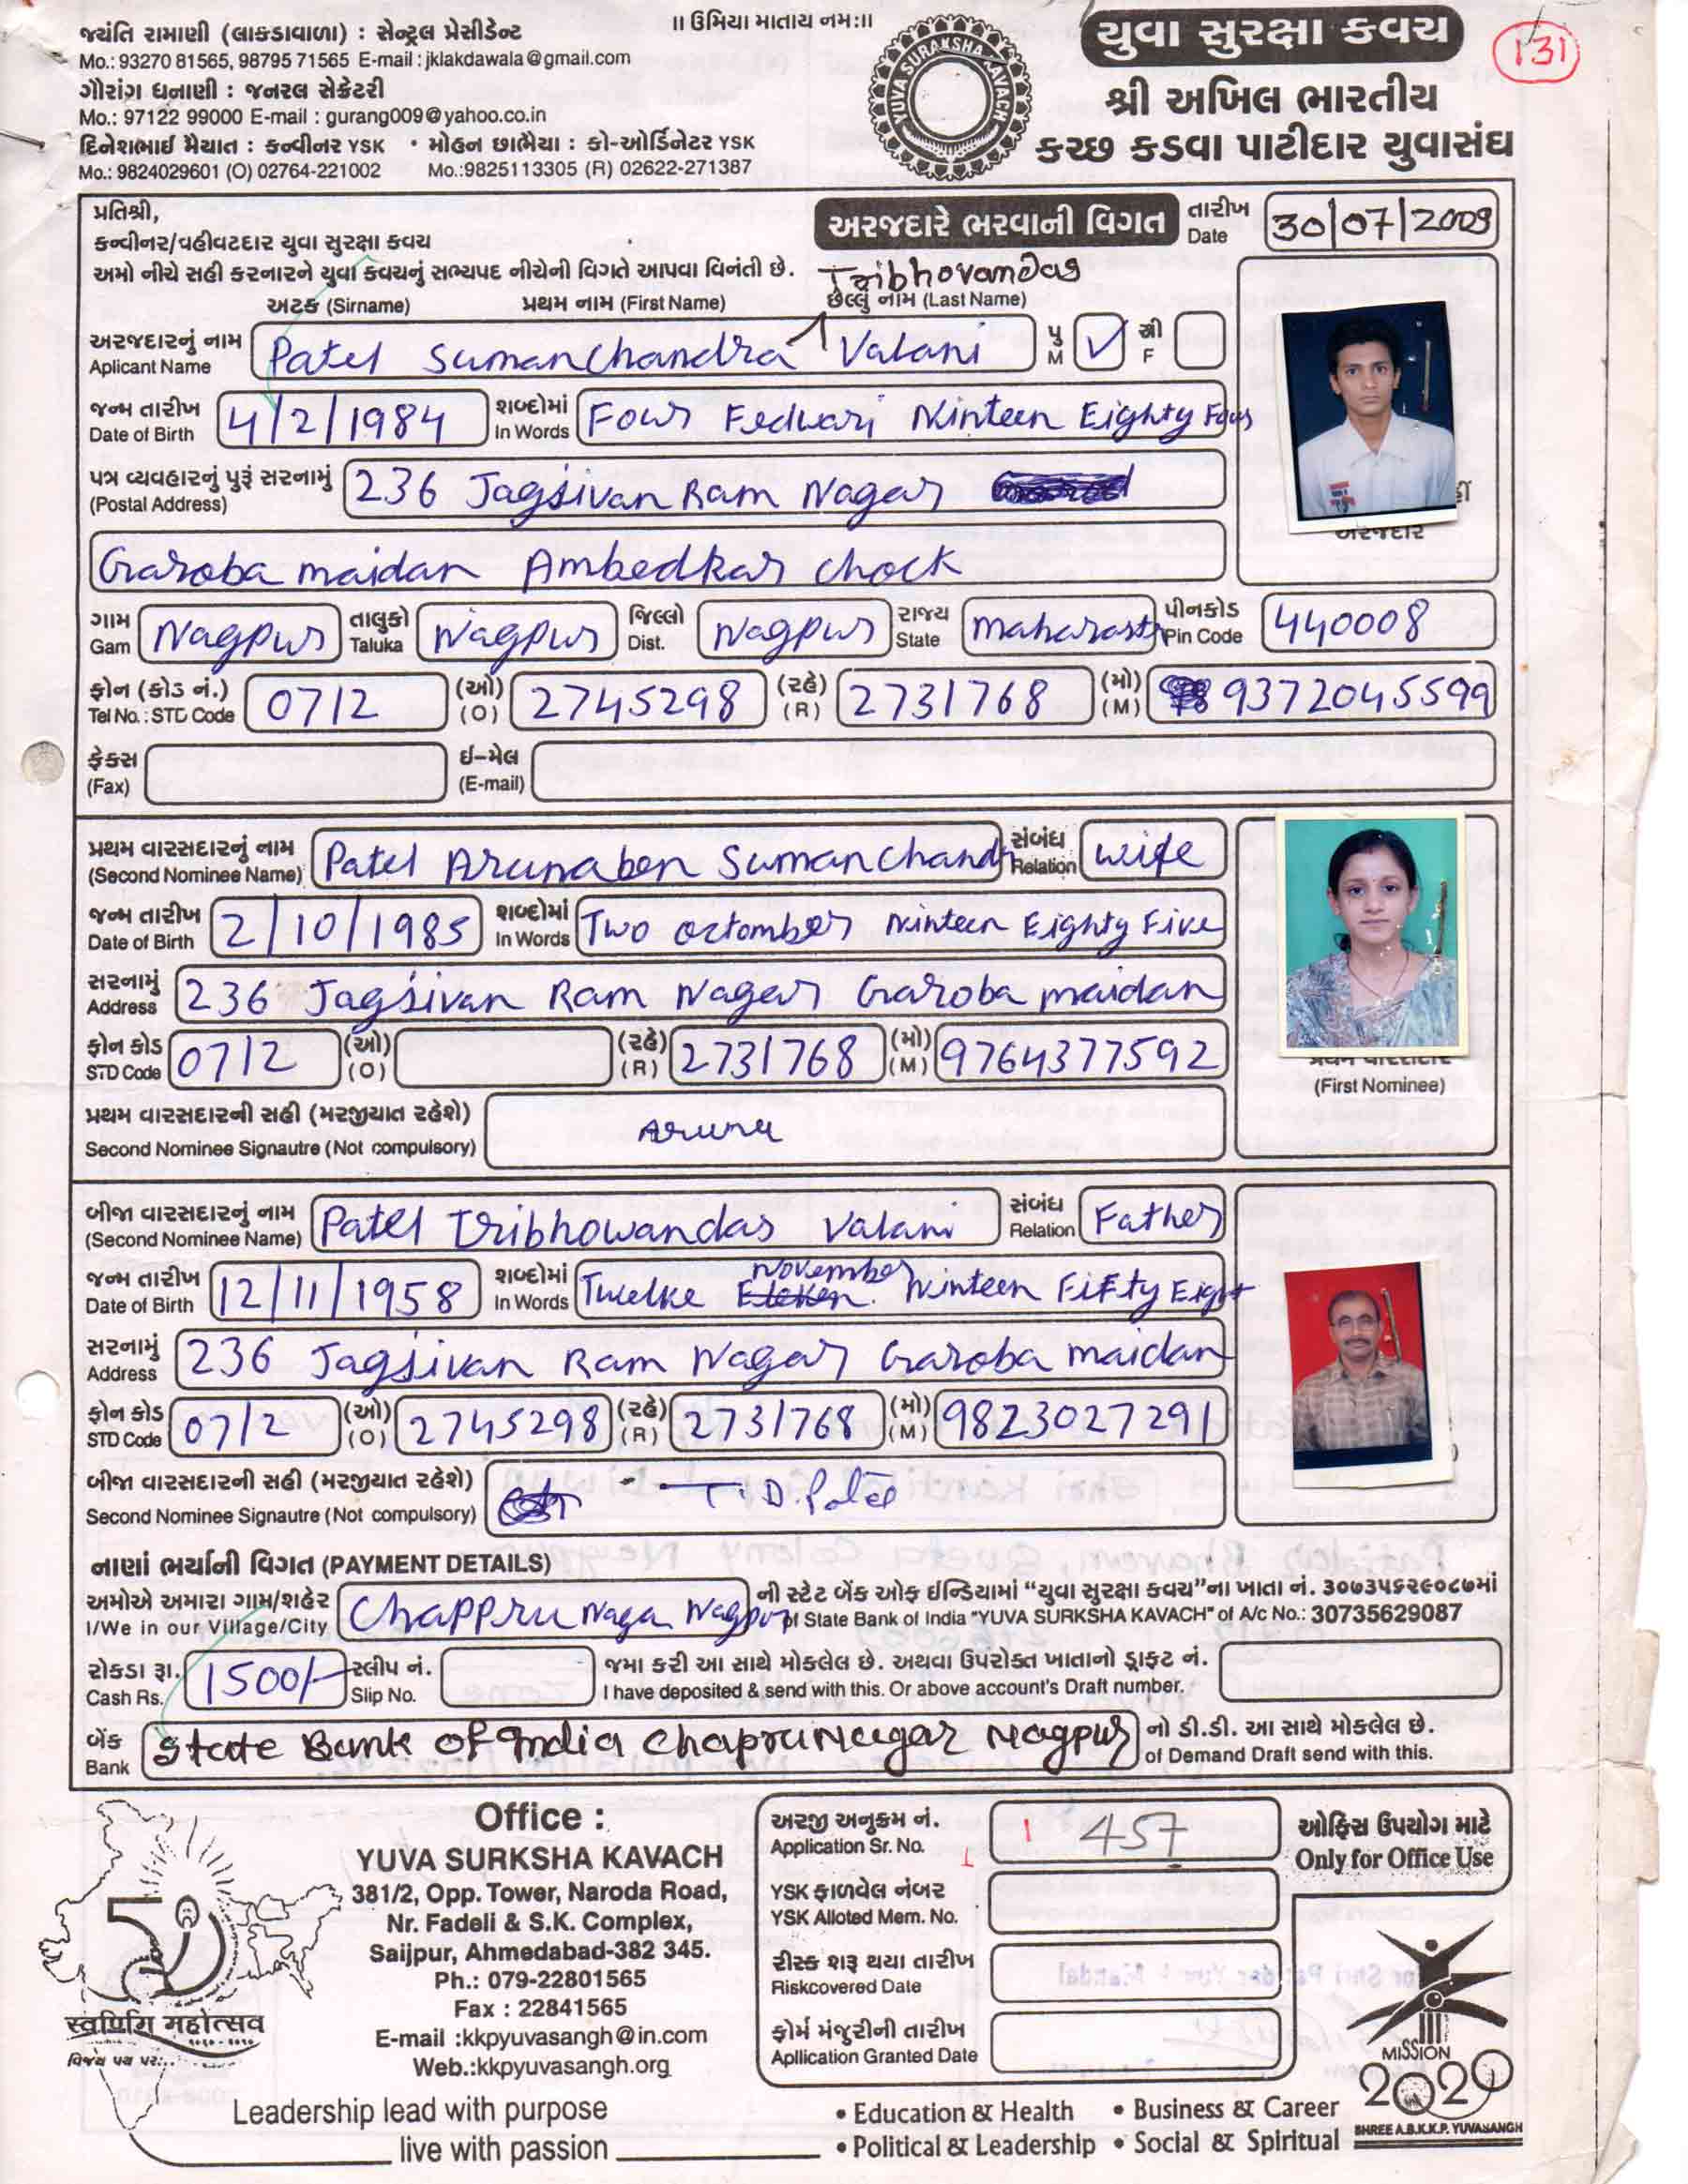 જયંતિ રામાણી (લાકડાવાળા) : સેન્ટ્રલ પ્રેસીડેન્ટ
Mo.: 93270 81565, 98795 71565 E-mail : jklakdawala@gmail.com
ગૌરાંગ ધનાણી : જનરલ સેક્રેટરી
Mo.: 97122 99000 E-mail : gurang009@yahoo.co.in
દિનેશભાઈ મૈયાત : કન્વીનર YSK • મોહન છાભૈયા : કો-ઓર્ડિનેટર YSK
Mo.: 9824029601 (O) 02764-221002 Mo.:9825113305 (R) 02622-271387
॥ ઉમિયા માતાય નમઃ॥
YUVA SURAKSHA KAVACH
યુવા સુરક્ષા કવચ
131
શ્રી અખિલ ભારતીય
કચ્છ કડવા પાટીદાર યુવાસંઘ
પ્રતિશ્રી,
કન્વીનર/વહીવટદાર યુવા સુરક્ષા કવચ
અમો નીચે સહી કરનારને યુવા કવચનું સભ્યપદ નીચેની વિગતે આપવા વિનંતી છે.
અરજદારે ભરવાની વિગત
તારીખ Date 30/07/2009
Tribhovandas
અટક (Sirname) પ્રથમ નામ (First Name) છેલ્લું નામ (Last Name)
અરજદારનું નામ Aplicant Name Patel Sumanchandra Valani પુ M ✓ સ્ત્રી F
જન્મ તારીખ Date of Birth 4/2/1984 શબ્દોમાં In Words Four Fedwari Ninteen Eighty Four
પત્ર વ્યવહારનું પુરૂં સરનામું (Postal Address) 236 Jagjivan Ram Nagar
Garoba maidan Ambedkar chock
અરજદાર
ગામ Gam Nagpur તાલુકો Taluka Nagpur જિલ્લો Dist. Nagpur રાજ્ય State Maharastr પીનકોડ Pin Code 440008
ફોન (કોડ નં.) Tel No. : STD Code 0712 (ઓ) (O) 2745298 (રહે) (R) 2731768 (મો) (M) 9372045599
ફેક્સ (Fax) ઈ-મેલ (E-mail)
પ્રથમ વારસદારનું નામ (Second Nominee Name) Patel Arunaben Sumanchandr સંબંધ Relation wife
જન્મ તારીખ Date of Birth 2/10/1985 શબ્દોમાં In Words Two octomber Ninteen Eighty Five
સરનામું Address 236 Jagjivan Ram Nagar Garoba maidan
ફોન કોડ STD Code 0712 (ઓ) (O) (રહે) (R) 2731768 (મો) (M) 9764377592
પ્રથમ વારસદાર
(First Nominee)
પ્રથમ વારસદારની સહી (મરજીયાત રહેશે)
Second Nominee Signautre (Not compulsory) Aruna
બીજા વારસદારનું નામ (Second Nominee Name) Patel Tribhowandas Valani સંબંધ Relation Father
જન્મ તારીખ Date of Birth 12/11/1958 શબ્દોમાં In Words Twelke Eleken November Ninteen Fifty Eight
સરનામું Address 236 Jagjivan Ram Nagar Garoba maidan
ફોન કોડ STD Code 0712 (ઓ) (O) 2745298 (રહે) (R) 2731768 (મો) (M) 9823027291
બીજા વારસદારની સહી (મરજીયાત રહેશે)
Second Nominee Signautre (Not compulsory) T. D. Patel
નાણાં ભર્યાની વિગત (PAYMENT DETAILS)
અમોએ અમારા ગામ/શહેર Chappru Naga Nagpur ની સ્ટેટ બેંક ઓફ ઈન્ડિયામાં "યુવા સુરક્ષા કવચ"ના ખાતા નં. ૩૦૭૩૫૬૨૯૦૮૭માં
I/We in our Village/City of State Bank of India "YUVA SURKSHA KAVACH" of A/c No.: 30735629087
રોકડા રૂા. 1500/- સ્લીપ નં. જમા કરી આ સાથે મોકલેલ છે. અથવા ઉપરોક્ત ખાતાનો ડ્રાફ્ટ નં.
Cash Rs. Slip No. I have deposited & send with this. Or above account's Draft number.
બેંક State Bank of India Chapru Nagar Nagpur નો ડી.ડી. આ સાથે મોકલેલ છે.
Bank of Demand Draft send with this.
Office :
YUVA SURKSHA KAVACH
381/2, Opp. Tower, Naroda Road,
Nr. Fadeli & S.K. Complex,
Saijpur, Ahmedabad-382 345.
Ph.: 079-22801565
Fax : 22841565
E-mail :kkpyuvasangh@in.com
Web.:kkpyuvasangh.org
અરજી અનુક્રમ નં.
Application Sr. No. 457
YSK ફાળવેલ નંબર
YSK Alloted Mem. No.
રીસ્ક શરૂ થયા તારીખ
Riskcovered Date
ફોર્મ મંજુરીની તારીખ
Apllication Granted Date
ઓફિસ ઉપયોગ માટે
Only for Office Use
50
स्वर्णिम महोत्सव
MISSION
2020
SHREE A.B.K.K.P. YUVASANGH
Leadership lead with purpose
live with passion
• Education & Health • Business & Career
• Political & Leadership • Social & Spiritual